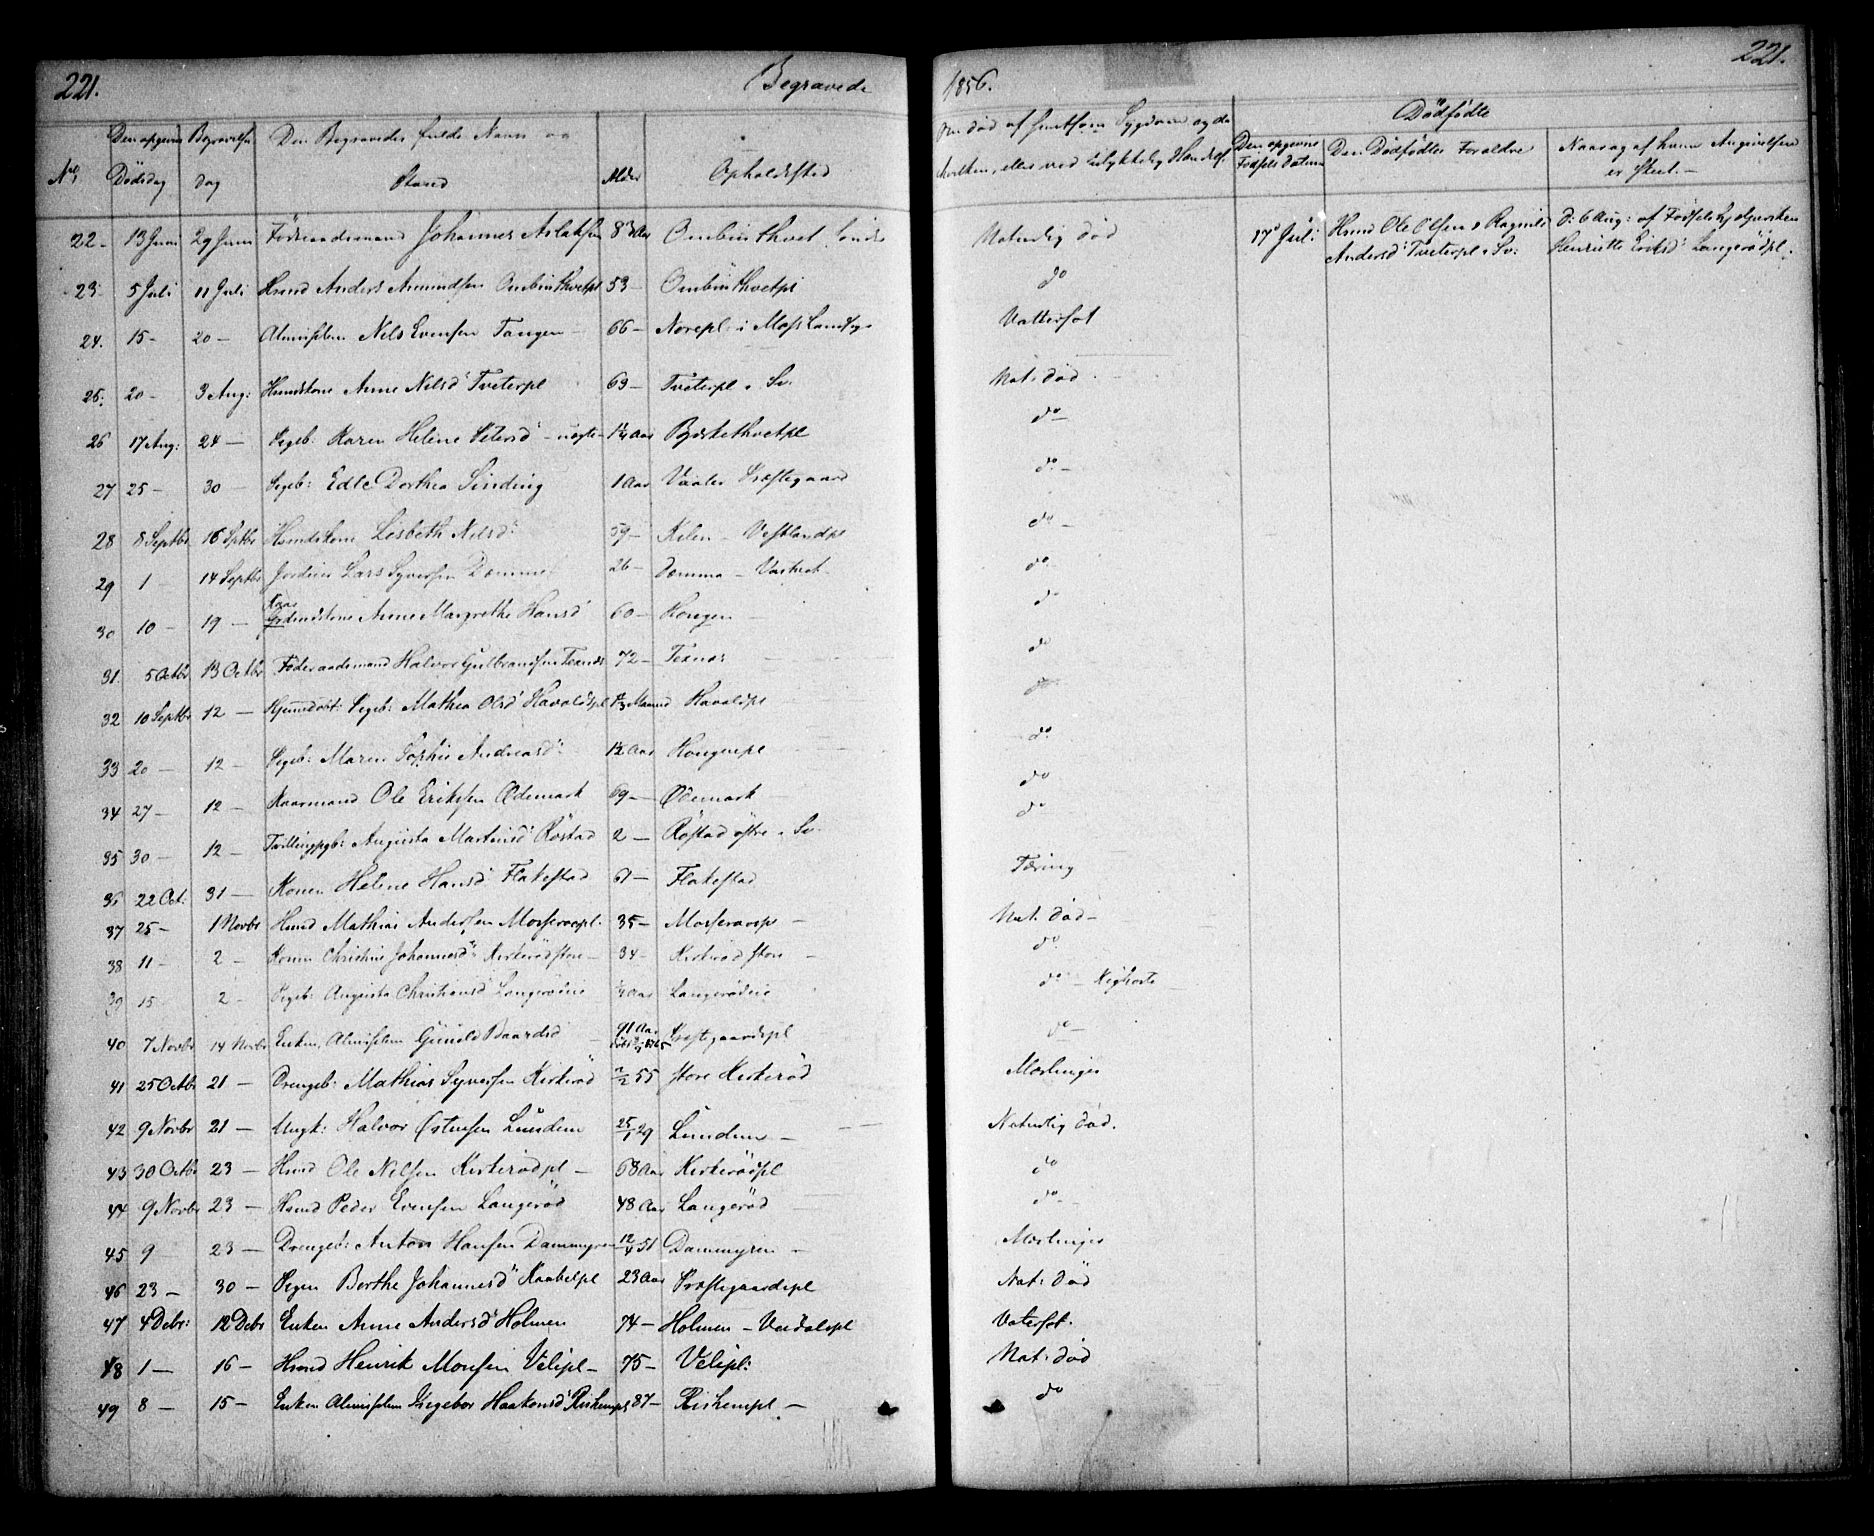 221.
Begravede
1856.
221.
No
Den opgivne Dødsdag
Begravelses dag
Den Begravedes fulde Navn og Stand
Alder
Opholdssted
Om død af smitsom Sygdom og da hvilken, eller ved ulykkelig Hændelse
Dødfødte
Den opgivne Fødsels Datum
Den Dødfødtes Forældre
Naar og af hvem Angivelsen er skeet. –
22 – 13 Juni 29 Juni Føderaadsmand Johannes Aslaksen 83 Aar Ombinthvet Naturlig død 17 Juli: Hmd Ole Olsen & Ragnild d: 6 Aug: af Fødselshjelpersken
Andersd: Tveterpl. Sv: Henriette Eriksd: Langerödpl.
23 – 5 Juli 11 Juli Hmd Anders Amundsen Ombintkvetpl 53 – Ombintkvetpl do
24. 15 – 20 – Almislem Nils Evensen Tangen – 66 – Norepl: i Moss Landsogn Vattersot
25. 20 – 3 Aug: Hmdskone Anne Nilsd Tveterpl 69 – Tveterpl. Sv. Nat: død
26 17 Aug: 24 – Pigeb: Karen Helene Petersd – uægte – 1¼ Aar Bjerkethvetpl do –
27 25 – 30 – Pigeb: Edle Dorthea Sinding 1 Aar Vaaler Præstegaard do –
28 8 Septbr 16 Sptbr Hmdskone Lisbeth Nilsd: 59 – Kilen – Vestlandpl do –
29 1 – 14 Septbr Lars Syversen Dæmma 26 – Dæmma – do
30 10 – 19 – Kone Grdmdskone Anne Margrethe Hansd 60 – Haugen – do
31. 5 Octbr 13 Octbr Føderaadsmand Halvor Gulbrandsen Texnæs 72 – Texnæs do
32 10 Septbr 12 – Hjemmedøbt: Pigeb: Mathea Olsd Havaldspl Maaned Havaldspl do
33 20 – 12 – Pigeb: Maren Sophie Andreasd: 1½ Aar Haugenpl do
34 27 – 12 – Kaarmand Ole Eriksen Ødemark 69 – Ødemark do
35 30 – 12 – Tvillingpgb: Augusta Martinsd Röstad 2 – Röstad östre. Sv. do
36 22 Oct: 31 – Konen Helene Hansd Flakestad 61 – Flakestad Tæring
37 25 – 1 Novbr Hmd Mathias Andersen Mosserødpl. 35 – Nat. død –
38 11 – 2 – Konen Christine Johannesd: Kirkerödstore – 34 – Kirkeröd store – do
39 15 – 2 – Pigeb: Augusta Christiansd Langerødeie ¼ Aar Langerødeie do – Kighoste
40 7 Novbr 14 Novbr Enken, Almislem Gunild Baardsd – 91 Aar Præstegaardspl do –
41 25 Octbr 21 – Drengeb: Mathias Syversen Kirkeröd 55 store Kirkeröd Mæslinger
42 9 Novbr 21 – Ungk: Halvor Østensen Lunden 25/1 29 Lunden – Naturlig død.
43 30 Octbr 23 – Hmd Ole Nilsen Kirkerödpl – 68 Aar Kirkerödpl do
44 9 Novbr 23 – Hmd Peder Evensen Langeröd 48 Aar Langeröd do
45 9 23 – Drengeb: Anton Hansen Dammyren 12/4 51 Dammyren – Mæslinger
46 23 – 30 – Pigen Berthe Johannesd Kaabelpl 23 Aar Præstegaardspl Nat: død
47 4 Debr: 12 Debr Enken Anne Andersd Holmen 74 – Holmen – Vatersot.
48 1 – 16 – Hmd Henrik Monsen Velipl – 75 – Velipl: Nat: død
49 8 – 15 – Enken Almislem Ingebor Haakonsd Riskenpl 87 – Riskenpl – do